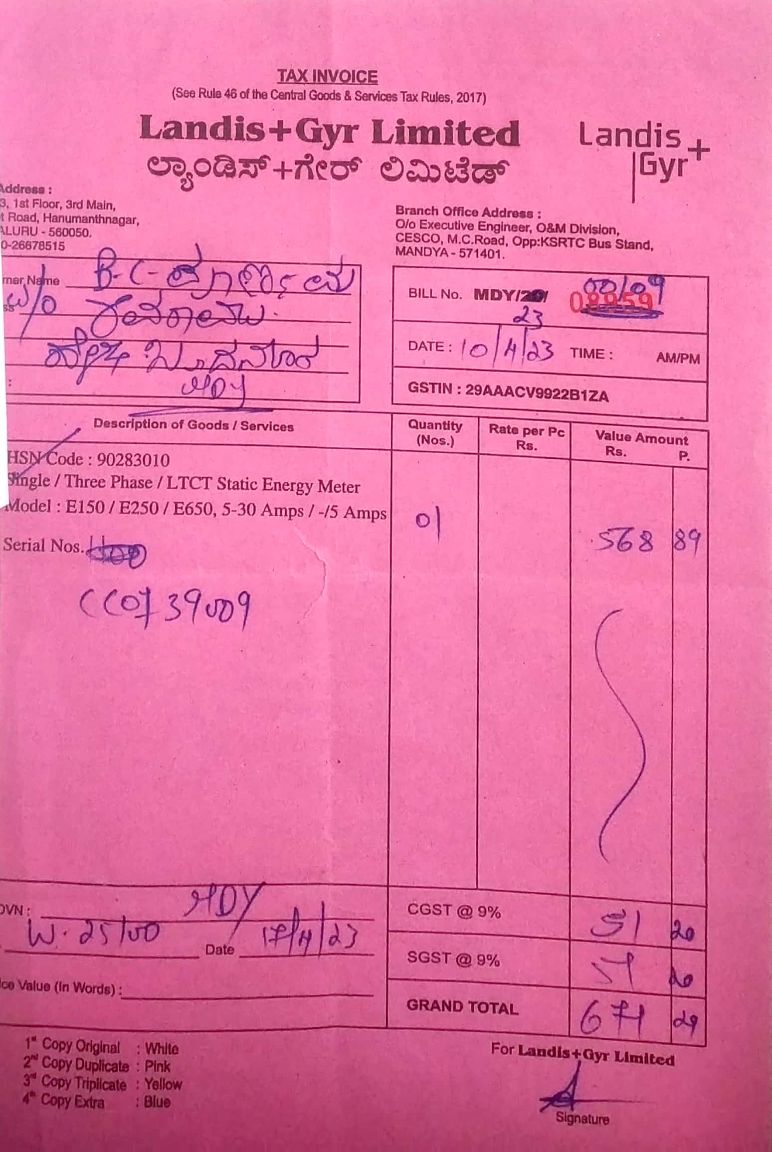 TAX INVOICE
(See Rule 46 of the Central Goods & Services Tax Rules, 2017)
Landis+Gyr Limited
ಲ್ಯಾಂಡಿಸ್+ಗೇರ್ ಲಿಮಿಟೆಡ್
Landis+
Gyr
Address :
3, 1st Floor, 3rd Main,
t Road, Hanumanthnagar,
ALURU - 560050.
0-26678515
Branch Office Address :
O/o Executive Engineer, O&M Division,
CESCO, M.C.Road, Opp:KSRTC Bus Stand,
MANDYA - 571401.
mer Name B.C.
W/o
MDY
BILL No. MDY/ 08959
23
DATE : 10/4/23 TIME : AM/PM
GSTIN : 29AAACV9922B1ZA
Description of Goods / Services Quantity (Nos.) Rate per Pc Rs. Value Amount Rs. P.
HSN Code : 90283010
Single / Three Phase / LTCT Static Energy Meter
Model : E150 / E250 / E650, 5-30 Amps / -/5 Amps 01 568 89
Serial Nos.
OVN : MDY
Date 17/4/23
ce Value (In Words) :
CGST @ 9% 51 20
SGST @ 9% 51 20
GRAND TOTAL 671 29
1st Copy Original : White
2nd Copy Duplicate : Pink
3rd Copy Triplicate : Yellow
4th Copy Extra : Blue
For Landis+Gyr Limited
Signature